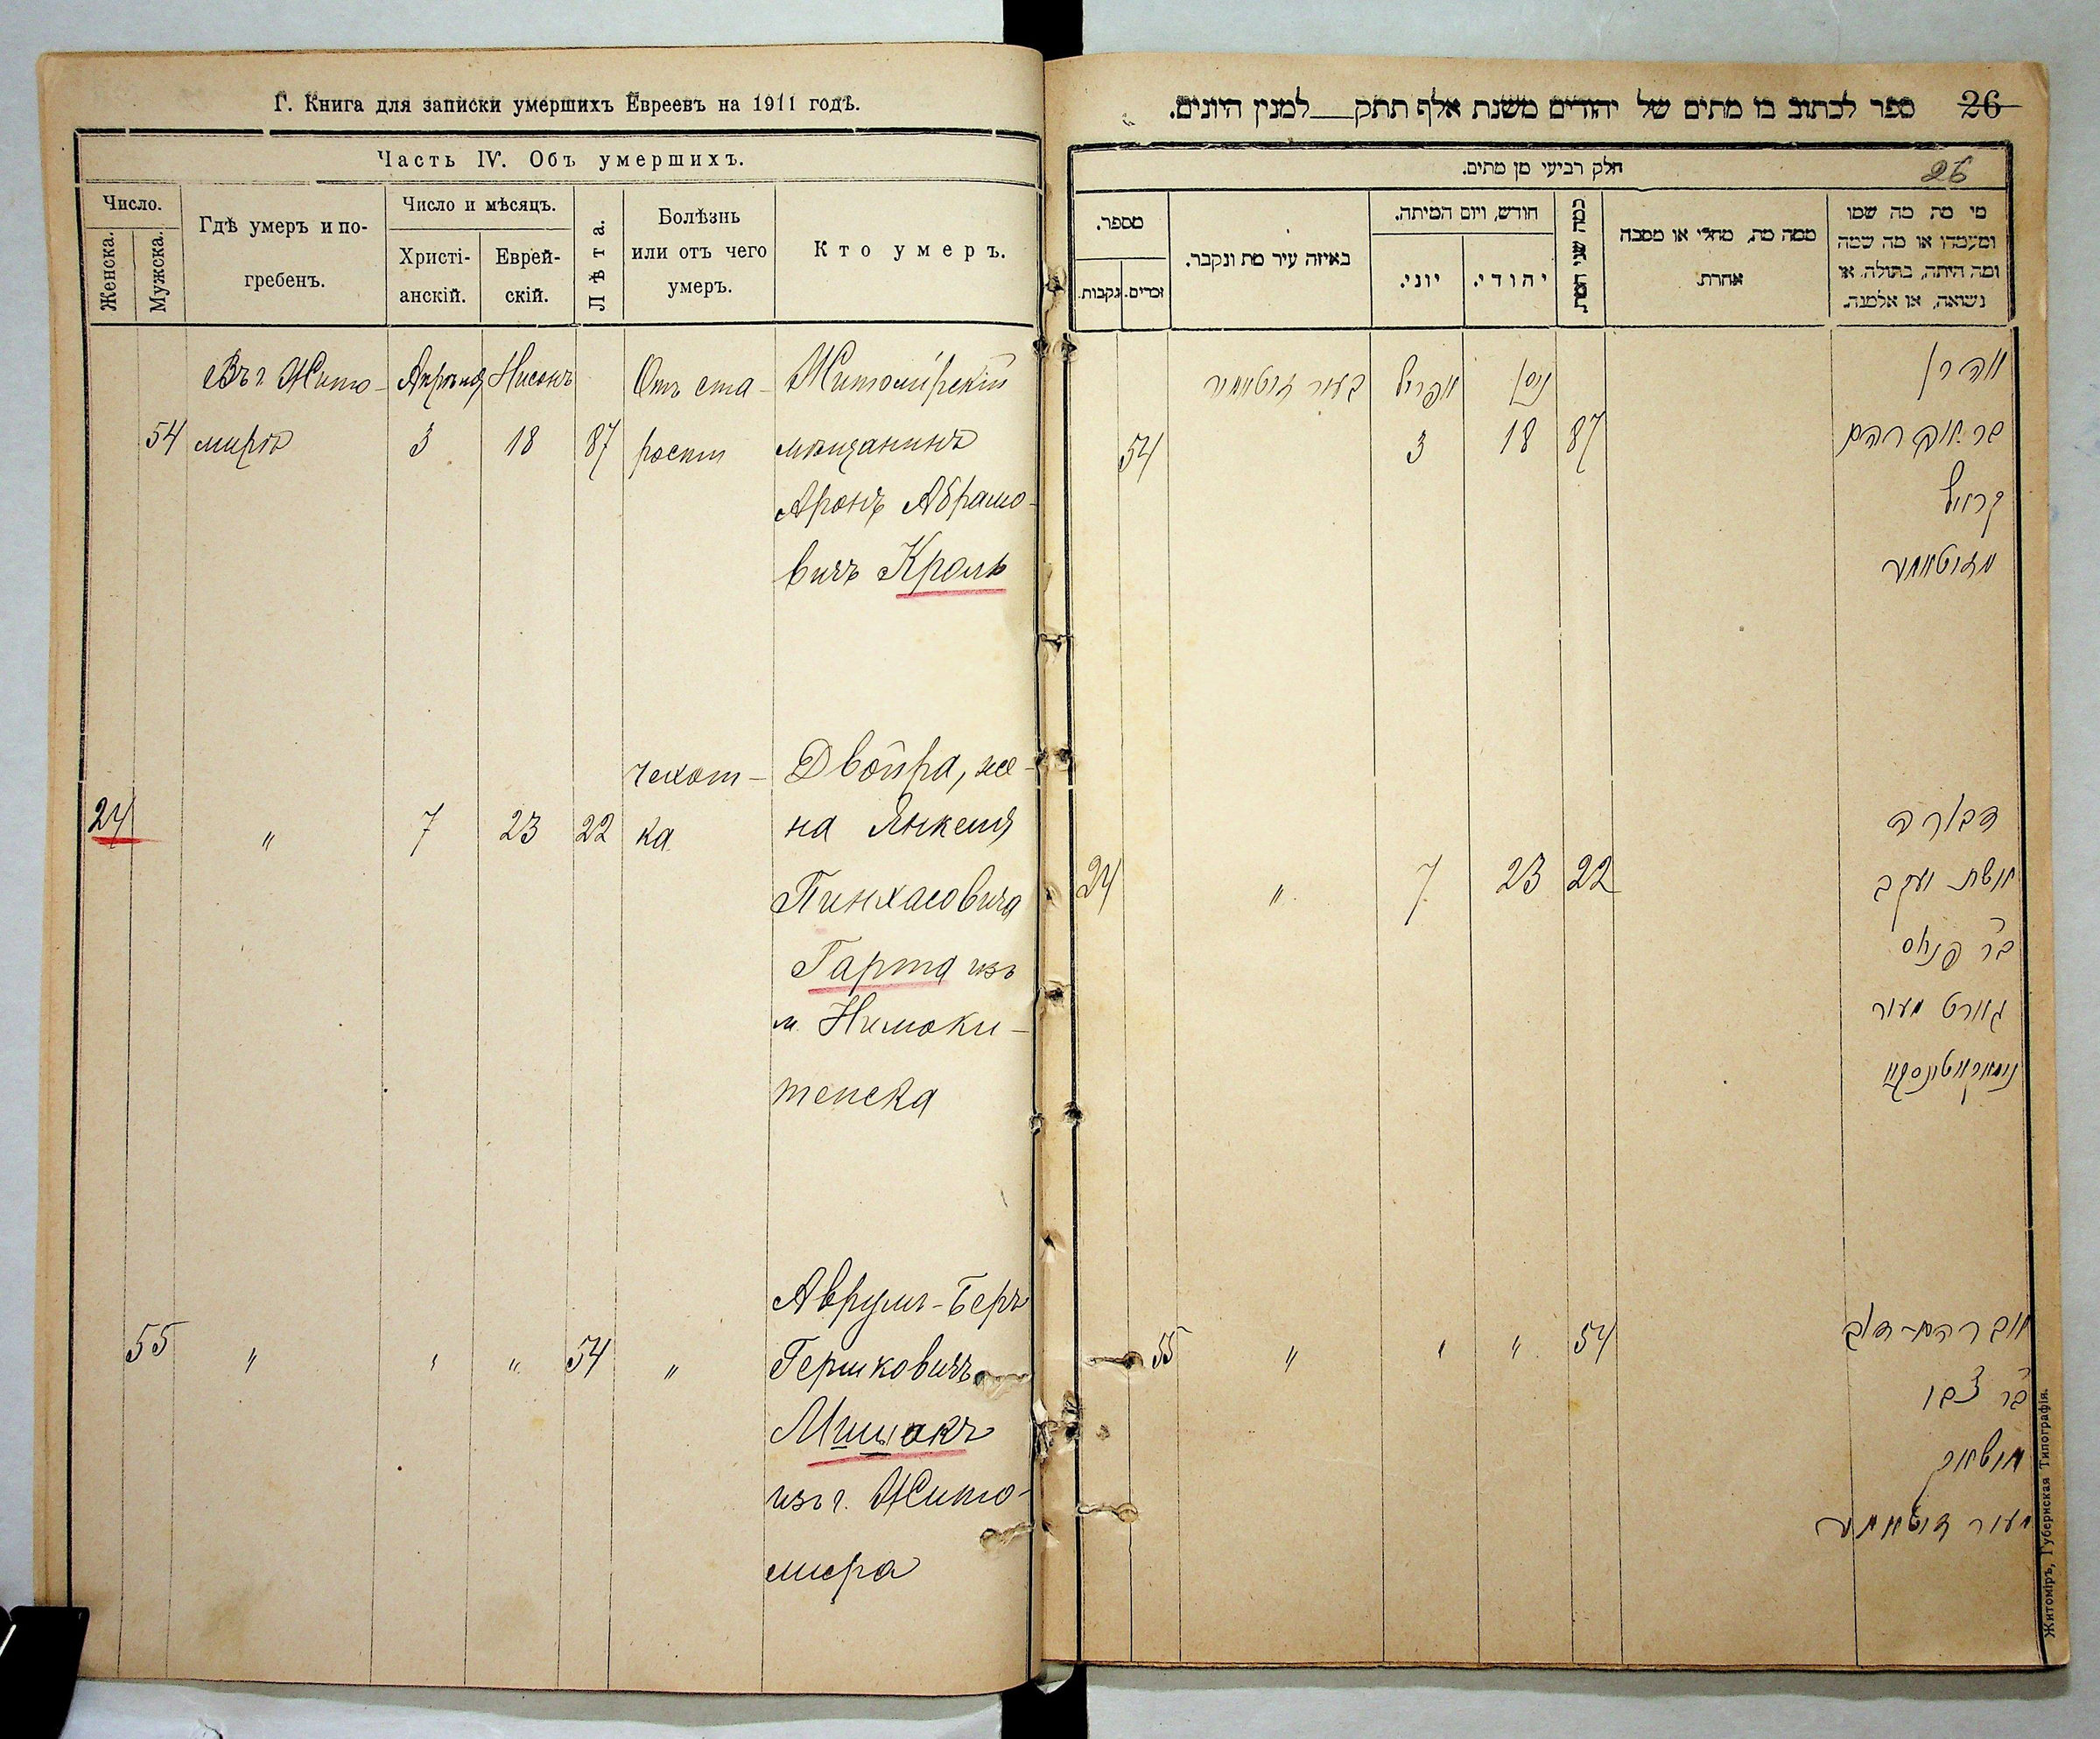 Г. Книга для записки умершихъ Евреевъ на 1911 годъ.
Часть IV. Объ умершихъ.
Число.
Женска.
Мужска.
Гдѣ умеръ и по-
гребенъ.
Число и мѣсяцъ.
Христі-
анскій.
Еврей-
скій.
Лѣта.
Болѣзнь
или отъ чего
умеръ.
Кто умеръ.
Въ г. Жито- Апрѣля Нисонъ Отъ ста- Житомірскій
54 мирѣ 3 18 87 рости мѣщанинъ
Аронъ Абрамо-
вичъ Кроль
чехот- Двойра, же-
24 " 7 23 22 ка на Янкеля
Пинхасовича
Гарта изъ
м.
тепска
Аврумъ-Беръ
55 " " " 54 " Гершковичъ
Мишокъ
изъ г. Жито-
мира
26 ספר לכתוב בו מתים של יהודים משנת אלף תתק למנין היונים.
חלק רביעי מן מתים.
26
מי מת מה שמו
ומעמדו או מה שמה
ומה היתה, בתולה, או
נשואה, או אלמנה.
ממה מת, מחלי או מסבה
אחרת.
כמה שני המת.
חודש, ויום המיתה.
יהודי.
יוני.
באיזה עיר מת ונקבר.
מספר.
זכרים.
נקבות.
אהרן ניסן אפריל בעיר זיטאמיר
בר אברהם 87 18 3 54
קראל
דבורה
אשת יעקב 22 23 7 " 24
בר פנחס
גארט מעיר
אברהם-דוב 54 " " " 55
בר צבי
מישאק
Житоміръ, Губернская Типографія.